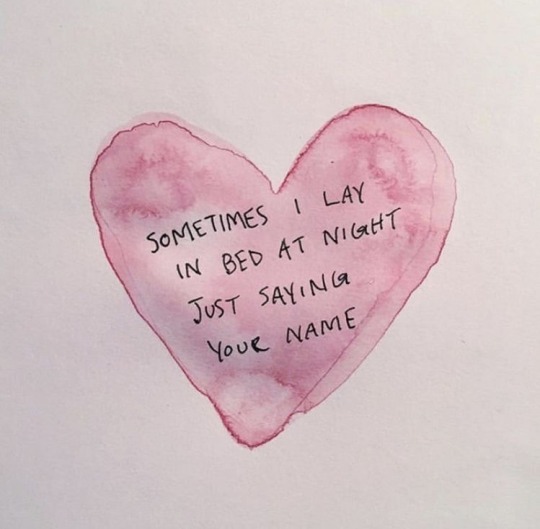 SOMETIMES I LAY
IN BED AT NIGHT
JUST SAYING
YOUR NAME